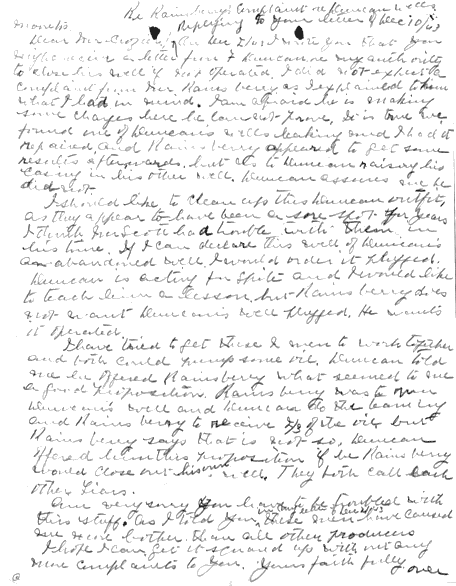 Re Rainsberry's Complaint re Duncan wells
Replying to your letter of Dec 10/43
Dear Mr. Crozier, On Dec I wrote you that you
might receive a letter from Duncan re my authority
to close his well if not operated. I did not expect a
complaint from Mr. Rainsberry as I explained to him
what I had in mind. I am afraid he is making
some charges here he can not prove. It is true we
found one of Duncan's wells leaking and I had it
repaired, and Rainsberry appeared to get some
results afterwards, but as to Duncan raising his
casing in his other well. Duncan assures me he
did not.
I should like to clean up this Duncan outfit,
as they appear to have been a sore spot for years
I think Mr. Scott had trouble with them in
his time. If I can declare this well of Duncan's
an abandoned well I would order it plugged.
Duncan is acting for spite and I would like
to teach him a lesson, but Rainsberry does
not want Duncan's well plugged. He wants
it operated.
I have tried to get these 2 men to work together
and both could pump some oil. Duncan told
me he offered Rainsberry what seemed to me
a good proposition. Rainsberry was to
Duncan's well and Duncan do the teaming
and Rainsberry to receive 2/3 of the oil but
Rainsberry says that is not so, Duncan
offered him this proposition if he Rainsberry
would close out his own well. They both call each
other Liars.
Am very sorry you have to be troubled with
this stuff. As I told you, these men have caused
me more bother than all other producers
I hope I can get it squared up without any
more complaints to you. Yours faithfully
over